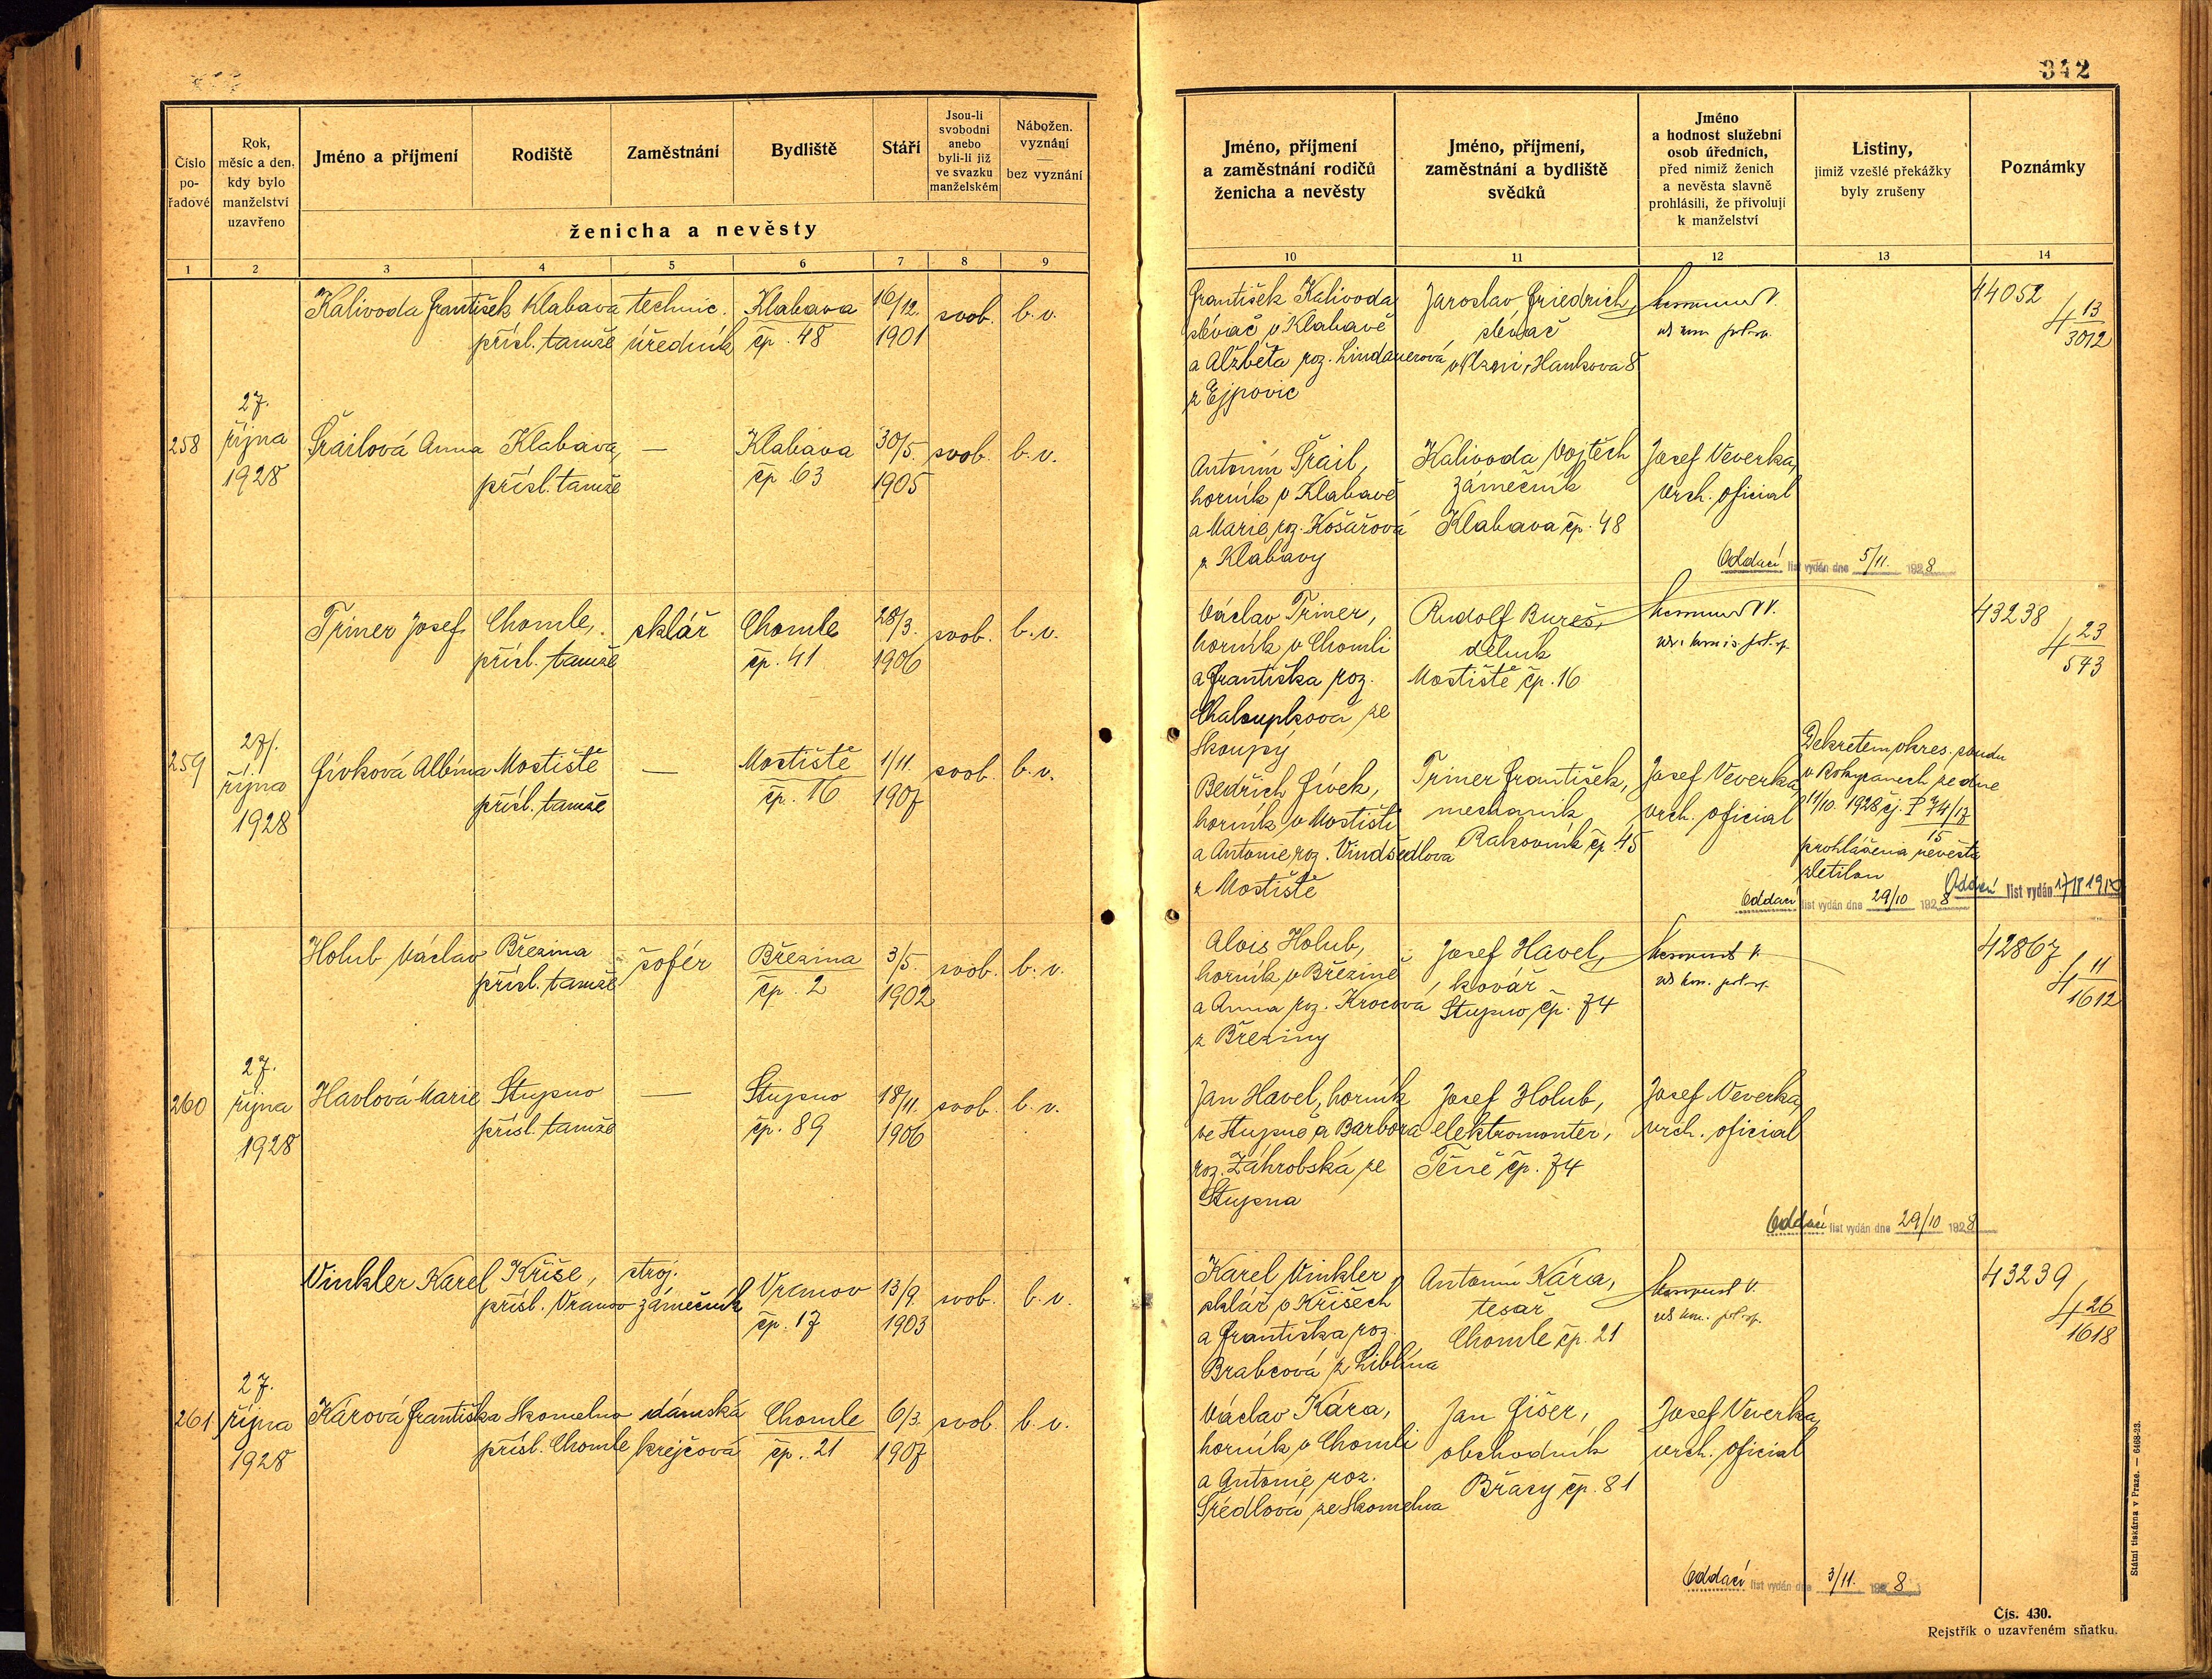 342
Číslo pořadové
Rok, měsíc a den, kdy bylo manželství uzavřeno
Jméno a příjmení
Rodiště
Zaměstnání
Bydliště
Stáří
Jsou-li svobodni anebo byli-li již ve svazku manželském
Nábožen. vyznání — bez vyznání
ženicha a nevěsty
Jméno, příjmení a zaměstnání rodičů ženicha a nevěsty
Jméno, příjmení, zaměstnání a bydliště svědků
Jméno a hodnost služební osob úředních, před nimiž ženich a nevěsta slavně prohlásili, že přivolují k manželství
Listiny, jimiž vzešlé překážky byly zrušeny
Poznámky
1 2 3 4 5 6 7 8 9 10 11 12 13 14
Kalivoda František Klabava technic. Klabava 16/12. svob. b. v.
přísl. tamže úředník čp. 48 1901
František Kalivoda
slévač v Klabavě
a Alžběta roz. Lindauerová
z Ejpovic
Jaroslav Friedrich,
slévač
v Plzni, Hankova 8
44052
4 13/3012
27.
258 října Šrailová Anna Klabava, — Klabava 30/5. svob. b. v.
1928 přísl. tamže čp. 63 1905
Antonín Šrail,
horník v Klabavě
a Marie roz. Košařová
z Klabavy
Kalivoda Vojtěch
zámečník
Klabava čp. 48
Josef Veverka,
vrch. oficial
Oddací list vydán dne 5/11. 1928
Triner Josef Chomle, sklář Chomle 28/3. svob. b. v.
přísl. tamže čp. 41 1906
Václav Triner,
horník v Chomli
a Františka roz.
Chaloupková ze
Skoupý
Rudolf Bureš,
dělník
Mostiště čp. 16
43238
4 23/543
27.
259 října Fívková Albína Mostiště — Mostiště 1/11. svob. b. v.
1928 přísl. tamže čp. 16 1907
Bedřich Fívek,
horník v Mostišti
a Antonie roz. Vindšedlova
z Mostiště
Triner František,
mechanik
Rakovník čp. 45
Josef Veverka,
vrch. oficial
Dekretem okres. soudu
v Rokycanech ze dne
11/10. 1928 čj. P 74/17
15
prohlášena nevěsta
zletilou
Oddací list vydán dne 29/10 1928
Oddací list vydán
Holub Václav Březina šofér Březina 3/5. svob. b. v.
přísl. tamže čp. 2 1902
Alois Holub,
horník v Březině
a Anna roz. Krocová
z Březiny
Josef Havel,
kovář
Stupno čp. 74
42867
4 11/1612
27.
260 října Havlová Marie Stupno — Stupno 18/11. svob. b. v.
1928 přísl. tamže čp. 89 1906
Jan Havel, horník
ve Stupně a Barbora
roz. Záhrobská ze
Stupna
Josef Holub,
elektromonter,
Těně čp. 74
Josef Veverka,
vrch. oficial
Oddací list vydán dne 29/10 1928
Vinkler Karel Kříše, stroj. Vranov 13/9. svob. b. v.
přísl. Vranov zámečník čp. 17 1903
Karel Vinkler,
sklář v Kříšech
a Františka roz.
Brabcová z Liblína
Antonín Kára,
tesař
Chomle čp. 21
43239
4 26/1618
27.
261 října Kárová Františka Skomelno dámská Chomle 6/3. svob. b. v.
1928 přísl. Chomle krejčová čp. 21 1907
Václav Kára,
horník v Chomli
a Antonie roz.
Šrédlová ze Skomelna
Jan Fišer,
obchodník
Břasy čp. 81
Josef Veverka,
vrch. oficial
Oddací list vydán dne 3/11. 1928
Státní tiskárna v Praze. — 6468-23.
Čís. 430.
Rejstřík o uzavřeném sňatku.